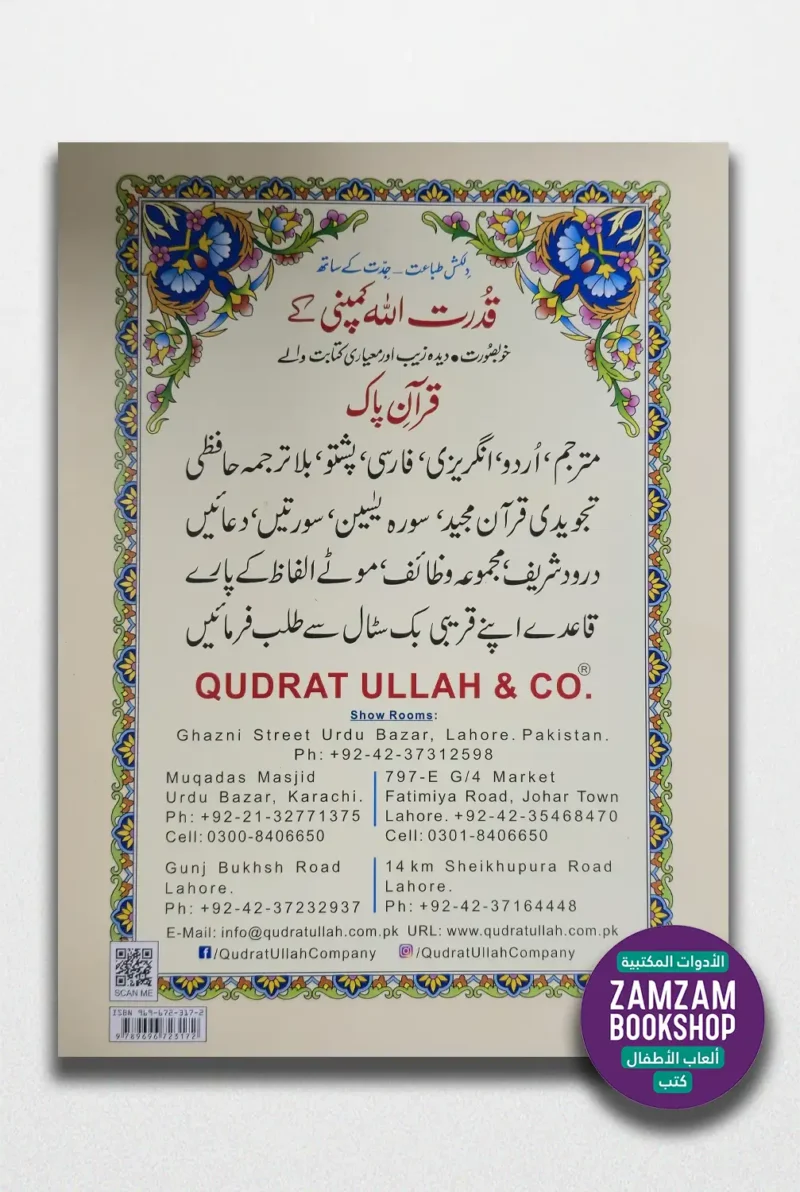 دلکش طباعت ـ جدّت کے ساتھ
قُدرت اللہ کمپنی کے
خوبصُورت • دیدہ زیب اور معیاری کتابت والے
قرآنِ پاک
مترجم، اُردو، انگریزی، فارسی، پشتو، بلا ترجمہ حافظی
تجویدی قرآن مجید، سورہ یٰسین، سورتیں، دعائیں
درود شریف، مجموعہ وظائف، موٹے الفاظ کے پارے
قاعدے اپنے قریبی بک سٹال سے طلب فرمائیں
QUDRAT ULLAH & CO.®
Show Rooms:
Ghazni Street Urdu Bazar, Lahore. Pakistan.
Ph: +92-42-37312598
Muqadas Masjid
Urdu Bazar, Karachi.
Ph: +92-21-32771375
Cell: 0300-8406650
797-E G/4 Market
Fatimiya Road, Johar Town
Lahore. +92-42-35468470
Cell: 0301-8406650
Gunj Bukhsh Road
Lahore.
Ph: +92-42-37232937
14 km Sheikhupura Road
Lahore.
Ph: +92-42-37164448
E-Mail: info@qudratullah.com.pk URL: www.qudratullah.com.pk
/QudratUllahCompany /QudratUllahCompany
SCAN ME
ISBN 969-672-317-2
9 789696 723172
الأدوات المكتبية
ZAMZAM
BOOKSHOP
ألعاب الأطفال
كتب